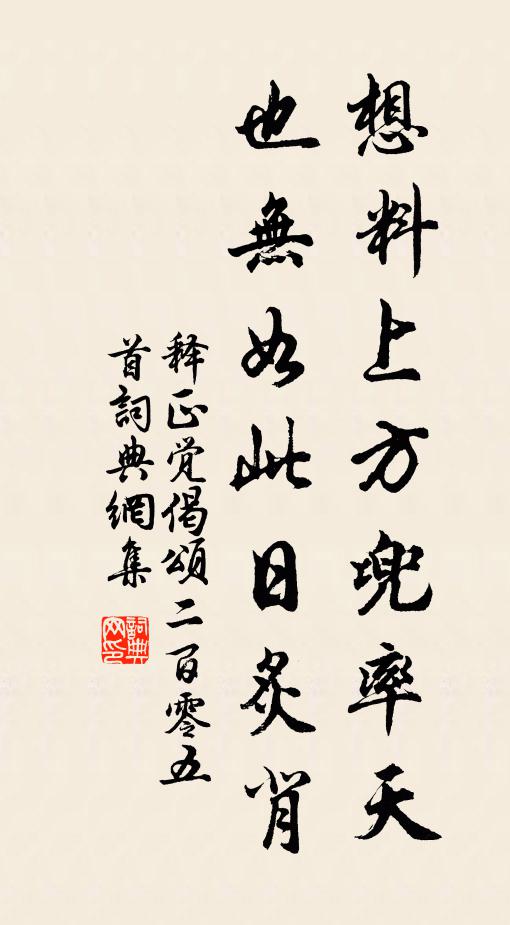 想料上方兜率天
也無如此日炙背
释正觉偈頌二百零五
首詞典網集
詞典
网印